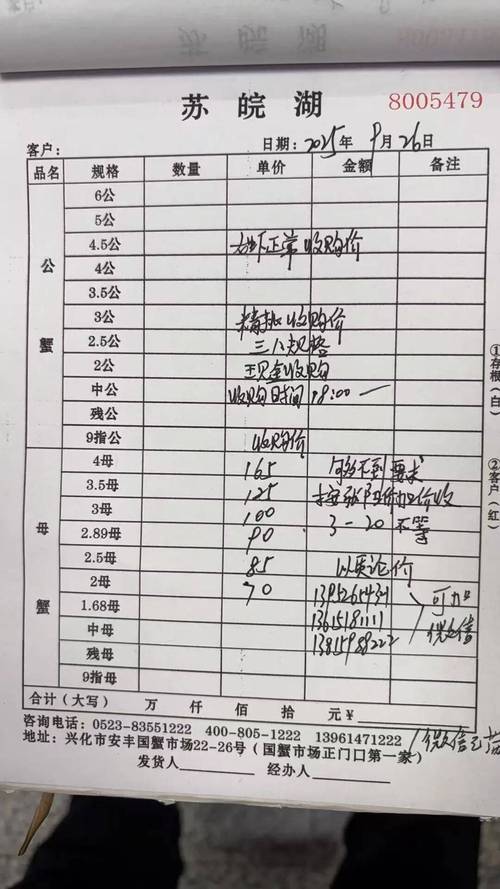 苏皖湖
8005479
客户： 日期：2025年9月26日
品名 规格 数量 单价 金额 备注
公蟹
6公
5公
4.5公 正常收购价
4公
3.5公
3公 精挑收购价
2.5公 三八规格
2公 现金收购
中公 收购时间 18:00
残公
9指公 收购价
母蟹
4母 165 达不到要求
3.5母 125
3母 100 3-20不等
2.89母 90
2.5母 85 以质论价
2母 70 13952654321 可加
1.68母 13615181111 微信
中母 13815988222
残母
9指母
合计（大写） 万 仟 佰 拾 元 ¥
咨询电话：0523-83551222 400-805-1222 13961471222
地址：兴化市安丰国蟹市场22-26号（国蟹市场正门口第一家）
发货人 经办人
①存根（白）
②客户（红）